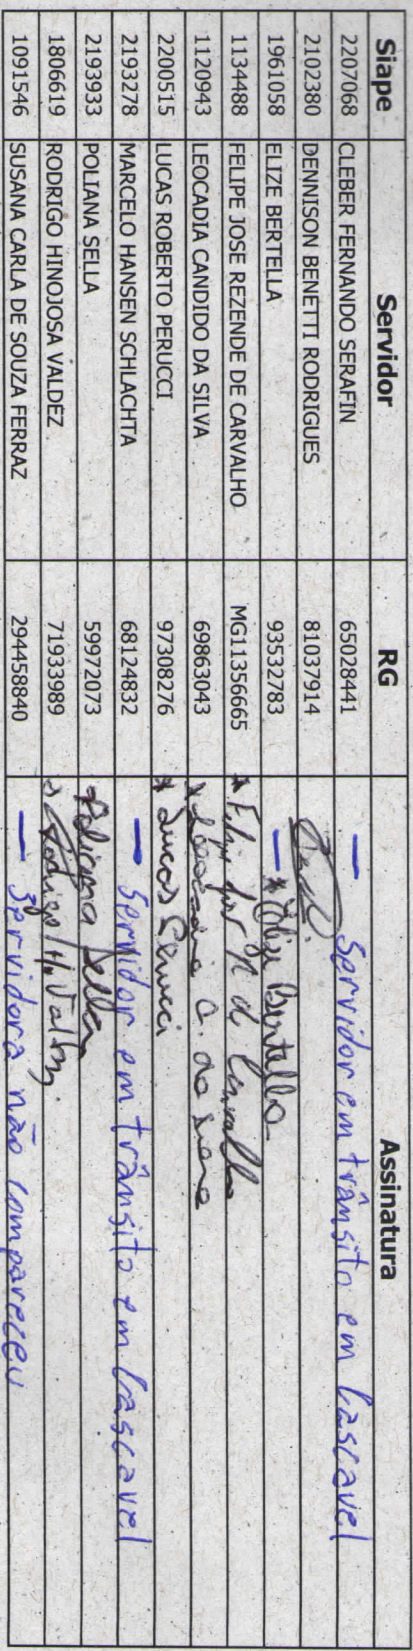 Siape Servidor RG Assinatura
2207068 CLEBER FERNANDO SERAFIN 65028441 — Servidor em trânsito em Cascavel
2102380 DENNISON BENETTI RODRIGUES 81037914
1961058 ELIZE BERTELLA 93532783 — * Elize Bertella
1134488 FELIPE JOSE REZENDE DE CARVALHO MG11356665 * Felipe José R de Carvalho
1120943 LEOCADIA CANDIDO DA SILVA 69863043 * Leocadia C. da Silva
2200515 LUCAS ROBERTO PERUCCI 97308276 * Lucas Perucci
2193278 MARCELO HANSEN SCHLACHTA 68124832 — Servidor em trânsito em Cascavel
2193933 POLIANA SELLA 59972073 * Poliana Sella
1806619 RODRIGO HINOJOSA VALDEZ 71933989 Rodrigo H. Valdez
1091546 SUSANA CARLA DE SOUZA FERRAZ 294458840 — Servidora não compareceu